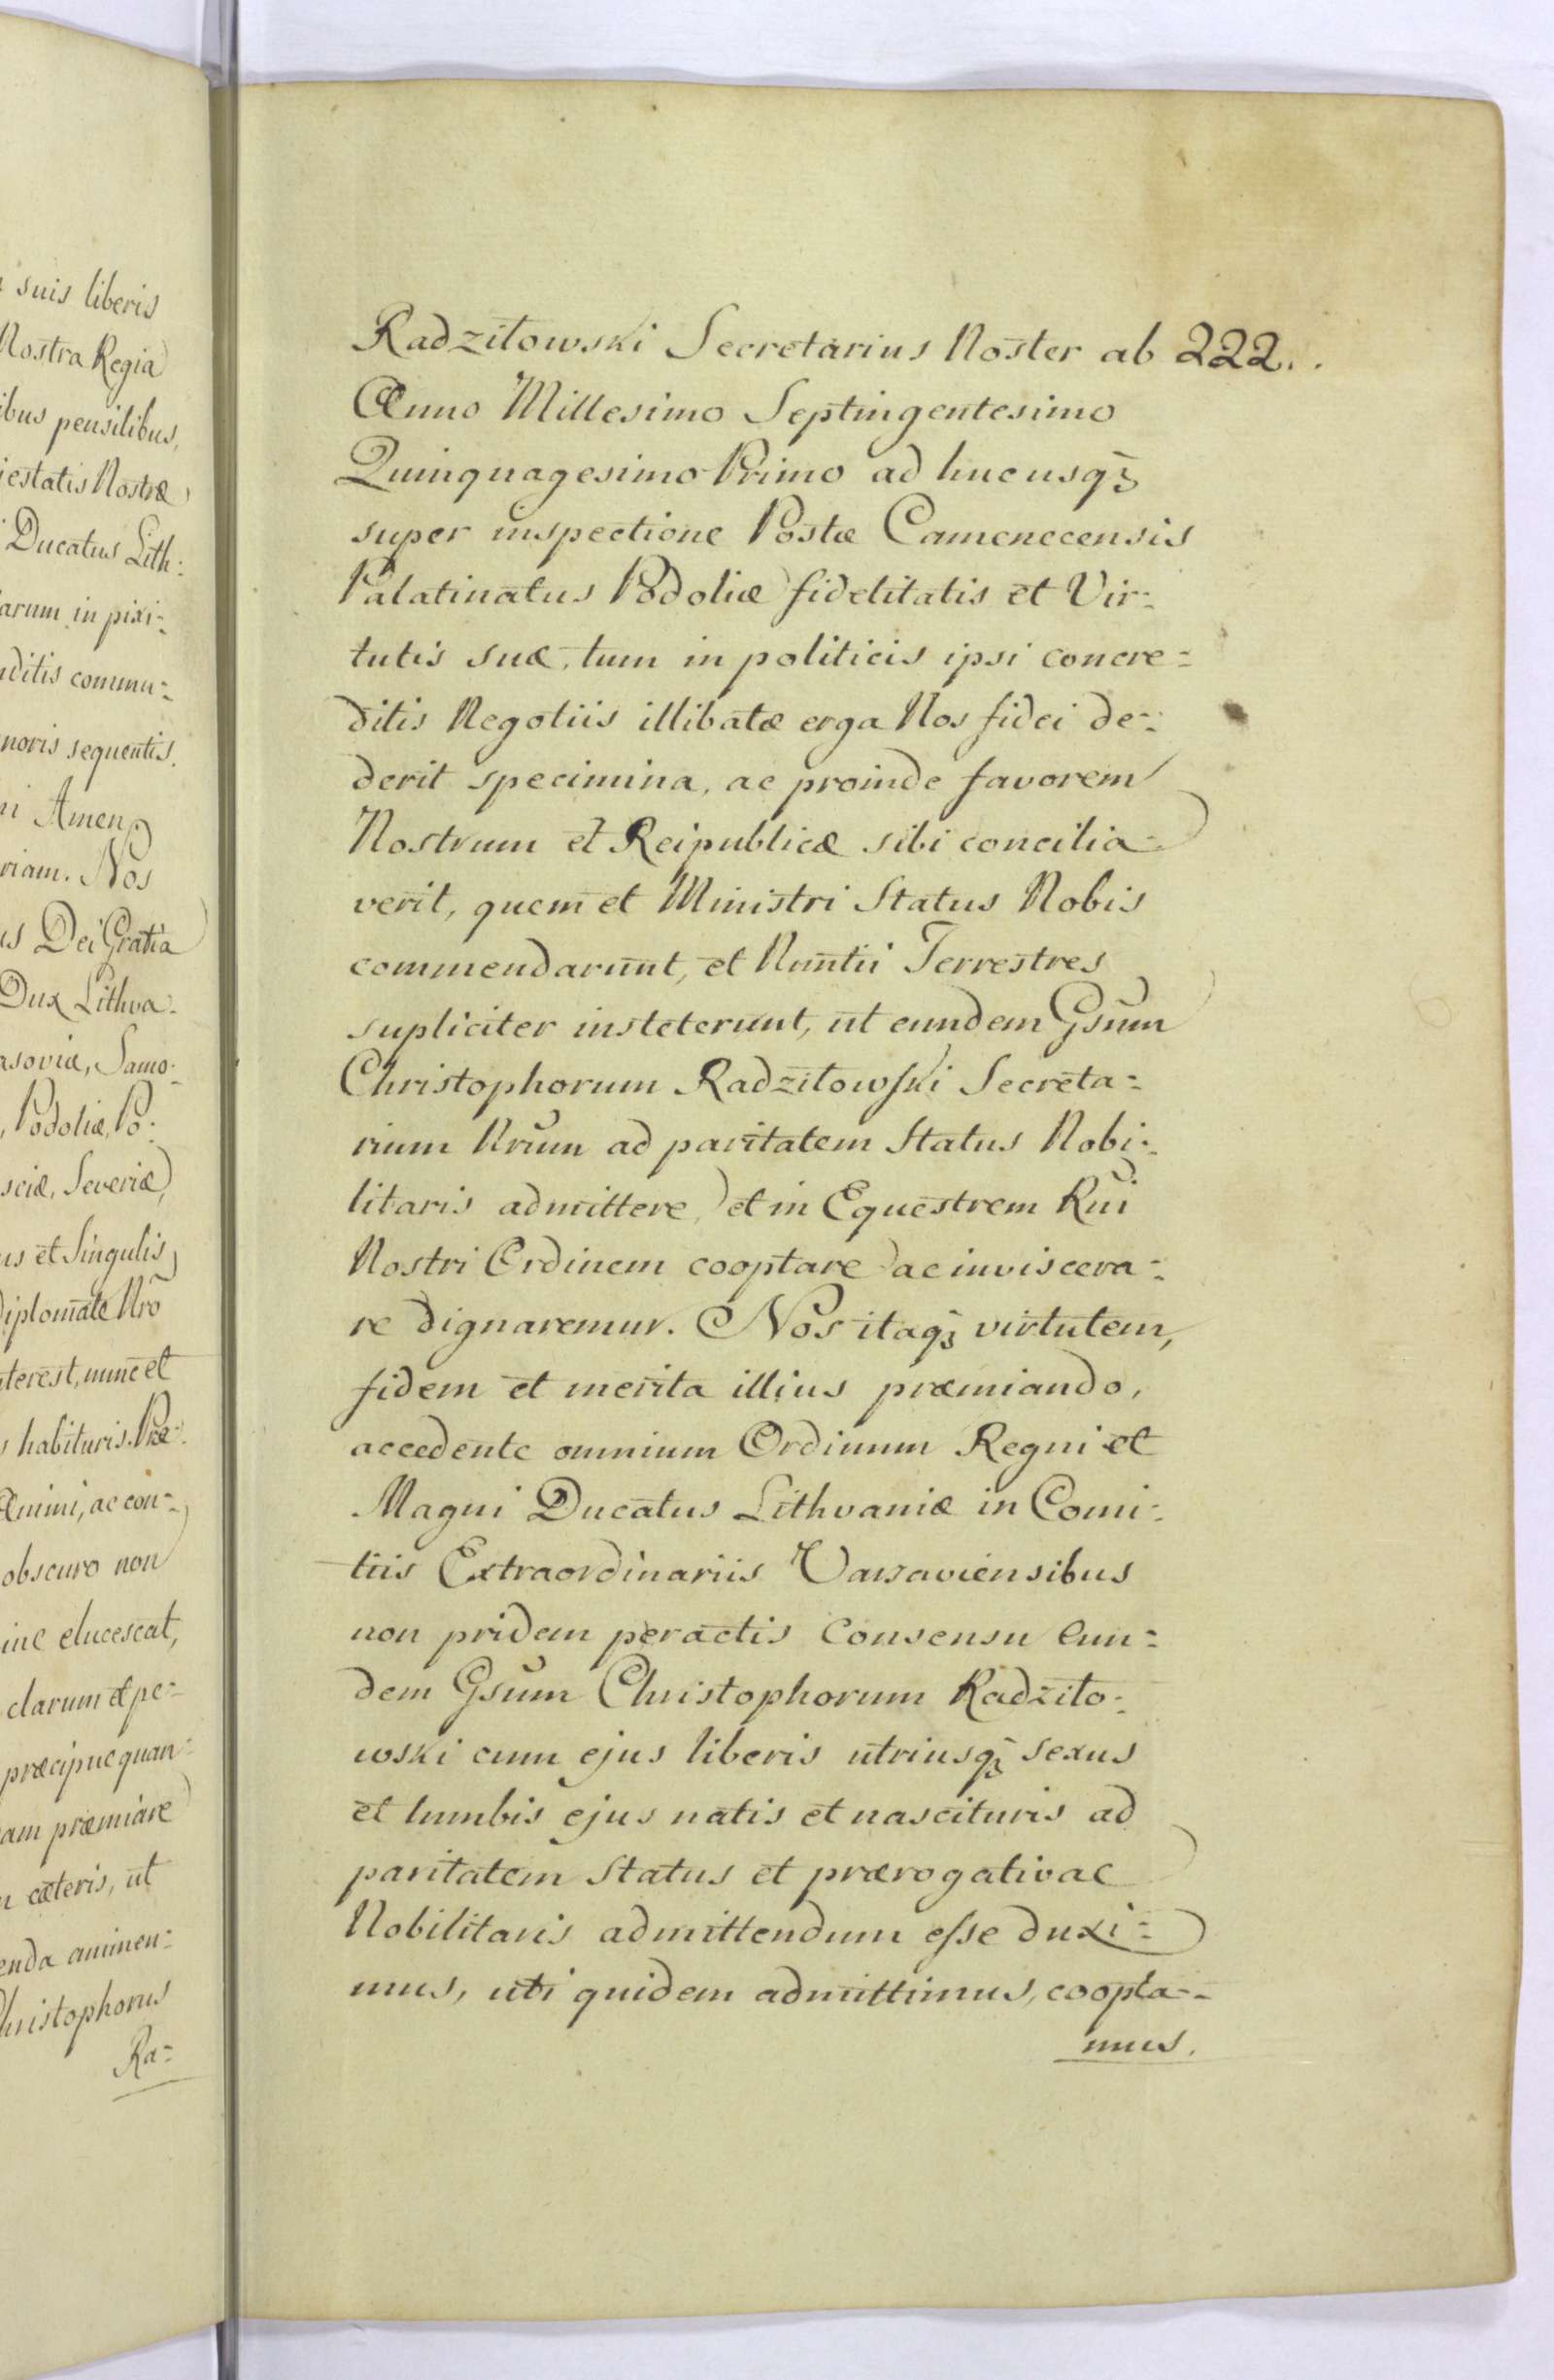 suis liberis
Nostra Regia
ibus pensilibus,
iestatis Nostræ
Ducatus Lith:
arum in pixi-
ditis commu-
noris sequentis.
ni Amen
riam. Nos
us Dei Gratia
Dux Lithva-
asoviæ, Samo-
, Podoliæ, Po-
sciæ, Severiæ,
us et Singulis
diplomate Nrõ
terest, nunc et
s habituris. Præ-
Animi, ac con-
obscuro non
ine elucescat,
clarum et pe-
præcipue quan-
am præmiare
n cæteris, ut
enda animen-
Christophorus
Ra-
Radzitowski Secretarius Noster ab 222..
Anno Millesimo Septingentesimo
Quinquagesimo Primo ad hucusq;
super inspectione Postæ Camenecensis
Palatinatus Podoliæ fidelitatis et Vir-
tutis suæ, tum in politicis ipsi concre-
ditis Negotiis illibatæ erga Nos fidei de-
derit specimina, ac proinde favorem
Nostrum et Reipublicæ sibi concilia-
verit, quem et Ministri Status Nobis
commendarunt, et Nuntii Terrestres
supliciter insteterunt, ut eundem Gsum
Christophorum Radzitowski Secreta-
rium Nrum ad paritatem Status Nobi-
litaris admittere, et in Equestrem Rni
Nostri Ordinem cooptare ac inviscera-
re dignaremur. Nos itaq; virtutem,
fidem et merita illius præmiando,
accedente omnium Ordinum Regni et
Magni Ducatus Lithvaniæ in Comi-
tiis Extraordinariis Varsaviensibus
non pridem peractis Consensu Eun-
dem Gsum Christophorum Radzito-
wski cum ejus liberis utriusq; sexus
et lumbis ejus natis et nascituris ad
paritatem Status et prærogativae
Nobilitaris admittendum esse duxi-
mus, uti quidem admittimus, coopta-
mus.